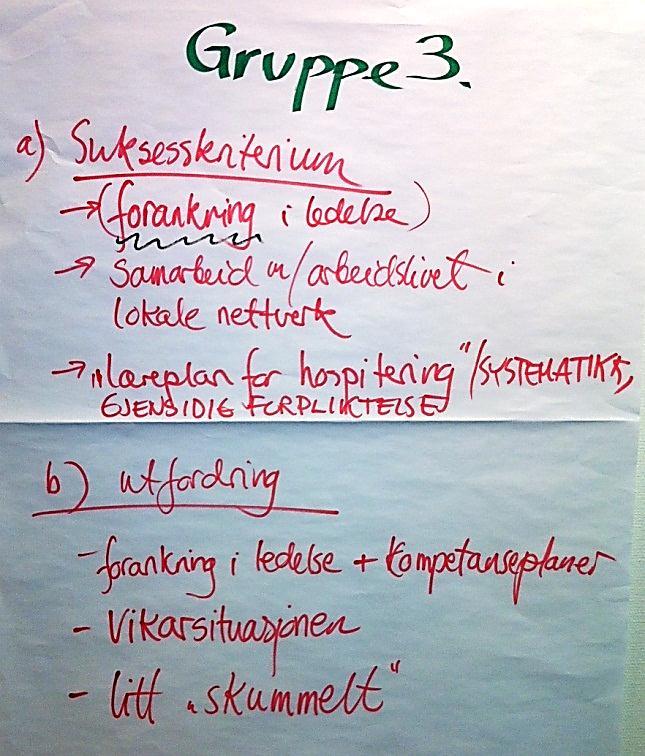 Gruppe 3.
a) Suksesskriterium
→ (forankring i ledelse)
→ Samarbeid m/arbeidslivet i
lokale nettverk
→ „læreplan for hospitering"/SYSTEMATIKK,
GJENSIDIG FORPLIKTELSE
b) utfordring
- forankring i ledelse + kompetanseplaner
- Vikarsituasjonen
- litt „skummelt"